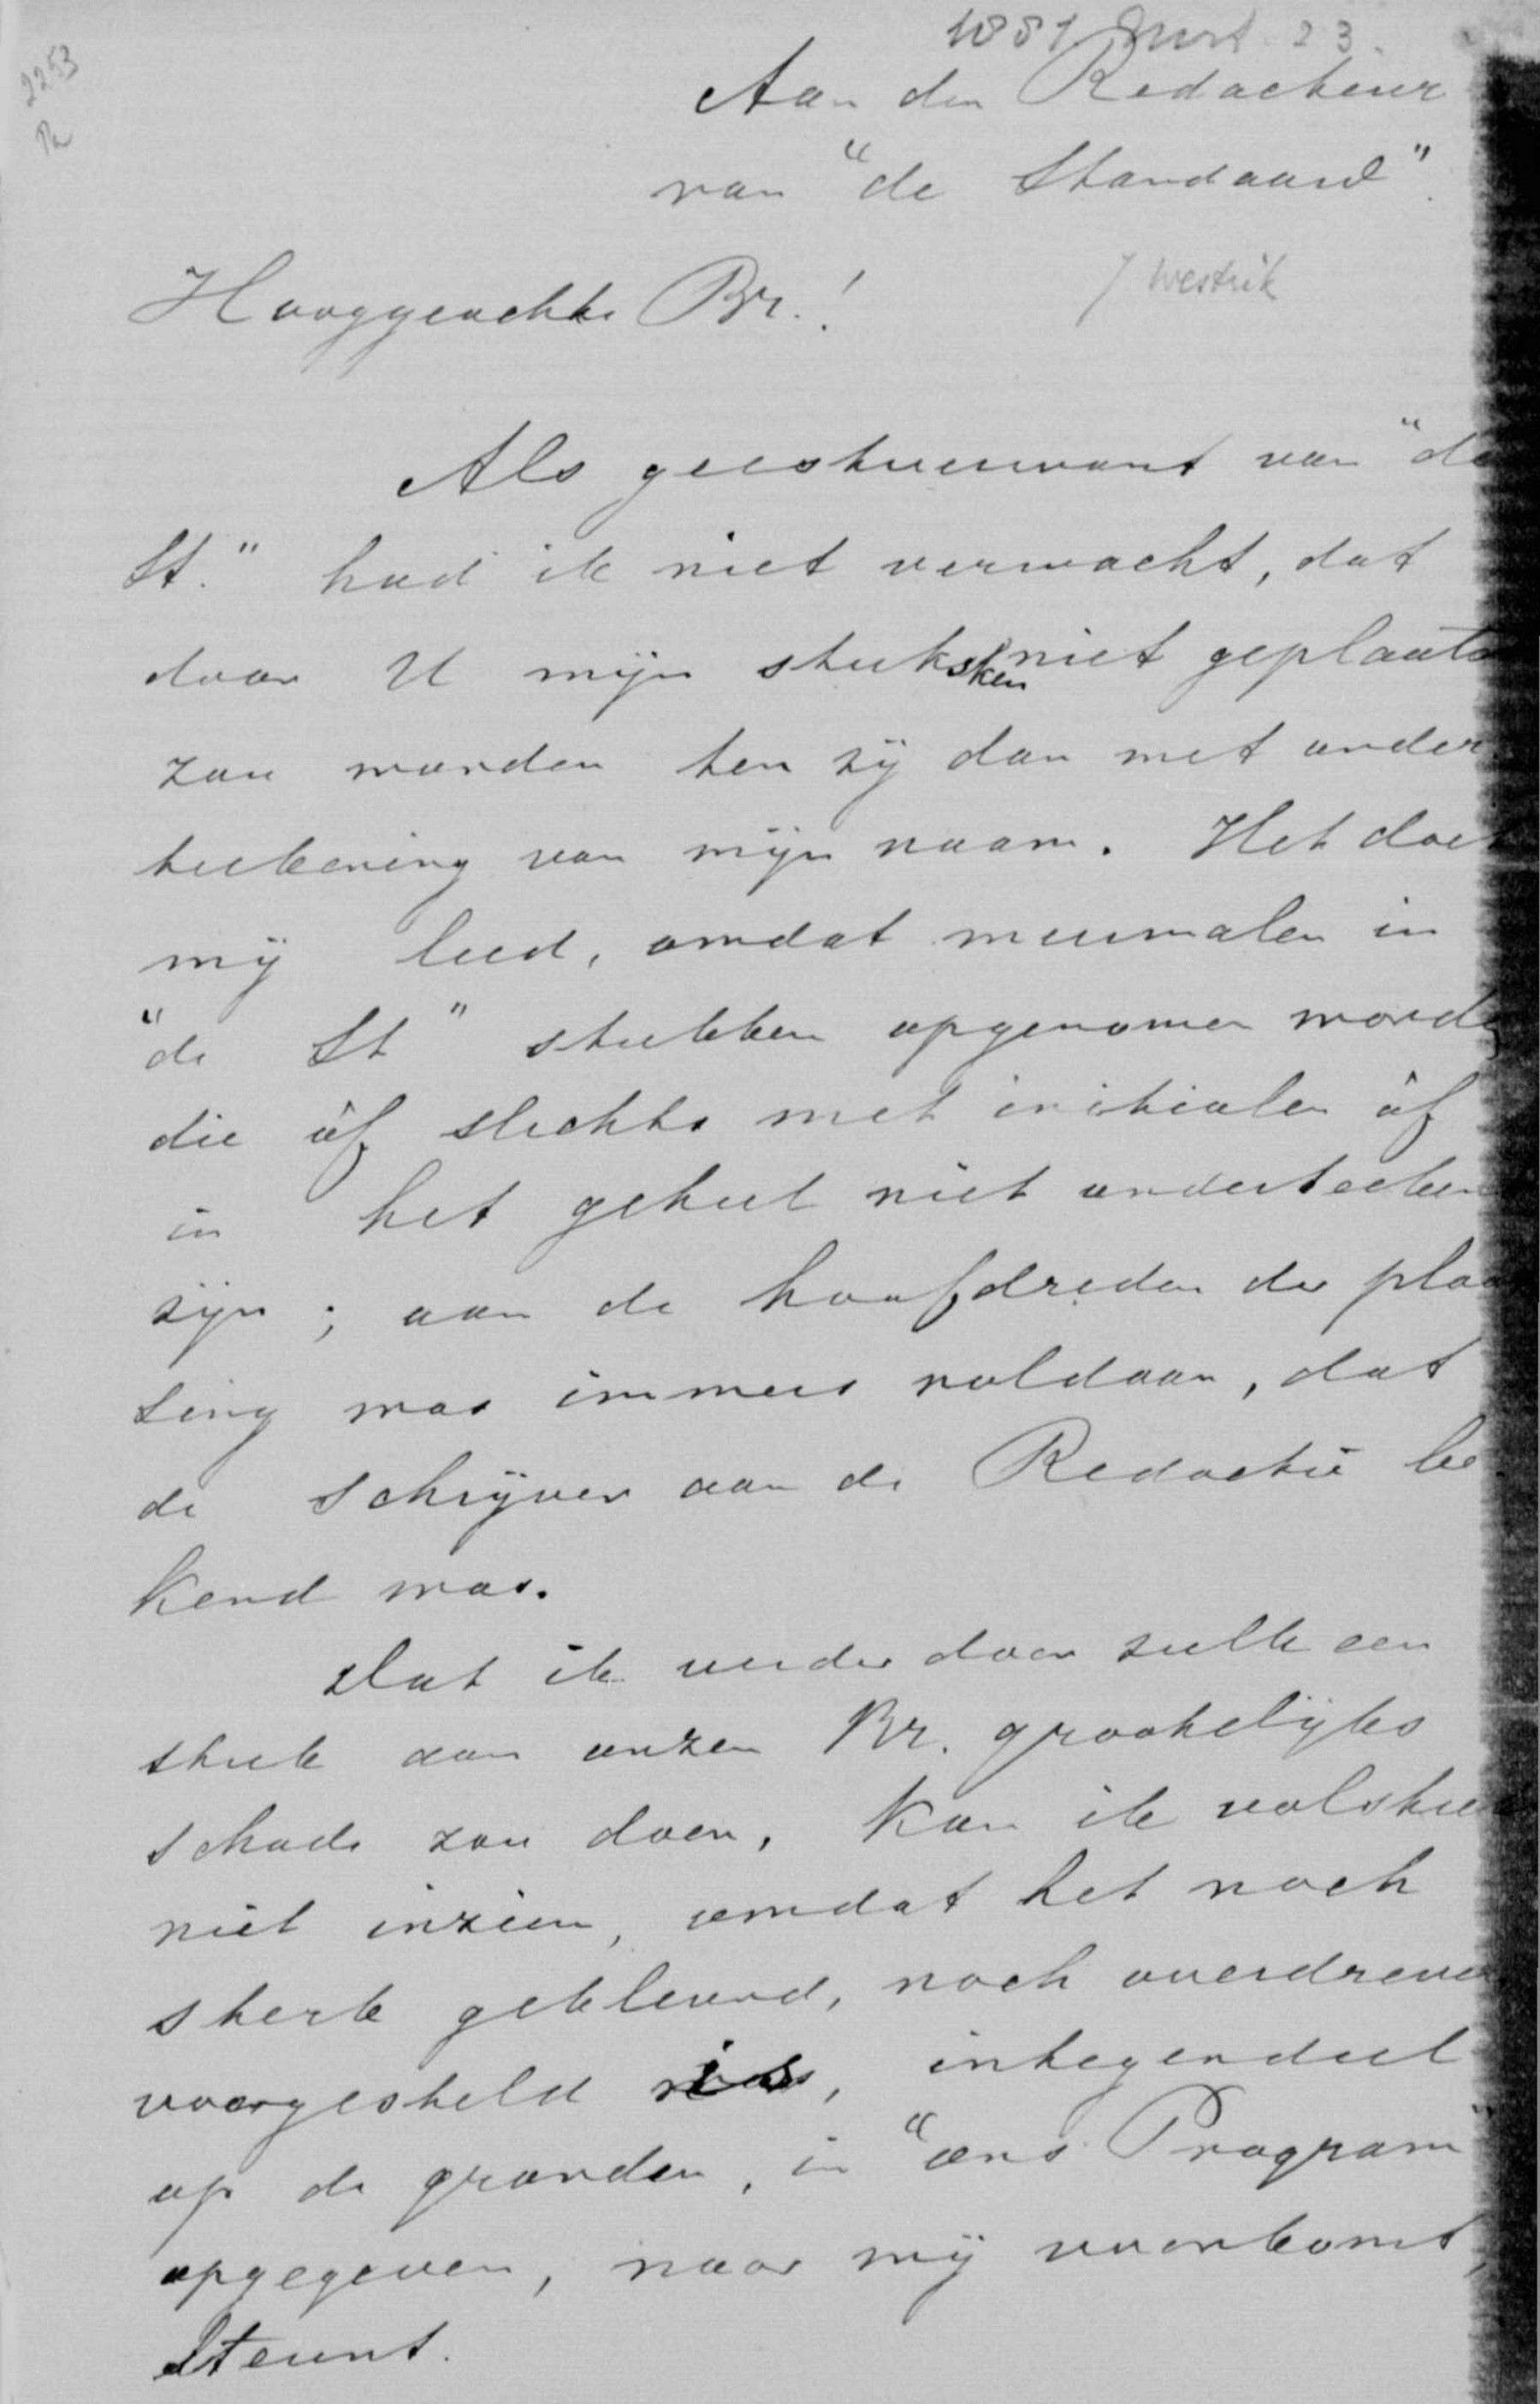 1881 Mrt 23.
2253
Aan den Redacteur
van "de Standaard".
J Westrik
Hooggeachte Br.!
Als geestverwant van "de
St." had ik niet verwacht, dat
door U mijn stuksken niet geplaats
zou worden ten zij dan met onder
teekening van mijn naam. Het doet
mij leed, omdat meermalen in
"de St" stukken opgenomen worden
die òf slechts met initialen òf
in het geheel niet onderteeken
zijn; aan de hoofdreden der plaa
sing was immers voldaan, dat
de schrijver aan de Redactie be
kend was.
Dat ik verder door zulk een
stuk aan onzen Br. grootelijks
schade zou doen, kan ik volstrek
niet inzien, omdat het noch
sterk gekleurd, noch overdreven
voorgesteld is, integendeel
op de gronden, in "ons Program"
opgegeven, naar mij voorkomt,
steunt.